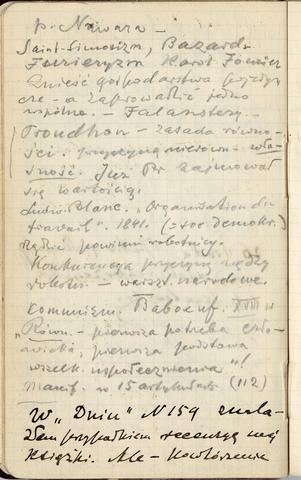 p. Nawara –
Saint-Simonizm, Bazard
Fourieryzm Karol Fourier
Znieść gospodarstwa pojedyń-
cze – a zaprowadzić jedno
wspólne. – Falanstery. –
Proudhon – zasada równo-
ści. przyczyną nierówn. – wła-
sność. Już Pr zajmował
się wartością.
Ludw. Blanc. „Organisation du
travail". 1841. (= soc demokr.)
rządzić powinni robotnicy.
Konkurencya przyczyn nędzy
robotn. – warszt. narodowe.
Kommunizm. Baboeuf. XVIII w
„Równ. – pierwsza potrzeba czło-
wieka, pierwsza podstawa
wszelk. uspołecznienia"!
Manif. w 15 artykułach (112)
W „Dniu" N 159 znala-
złem przypadkiem recenzyę mej
książki. Ale – powtórzenie